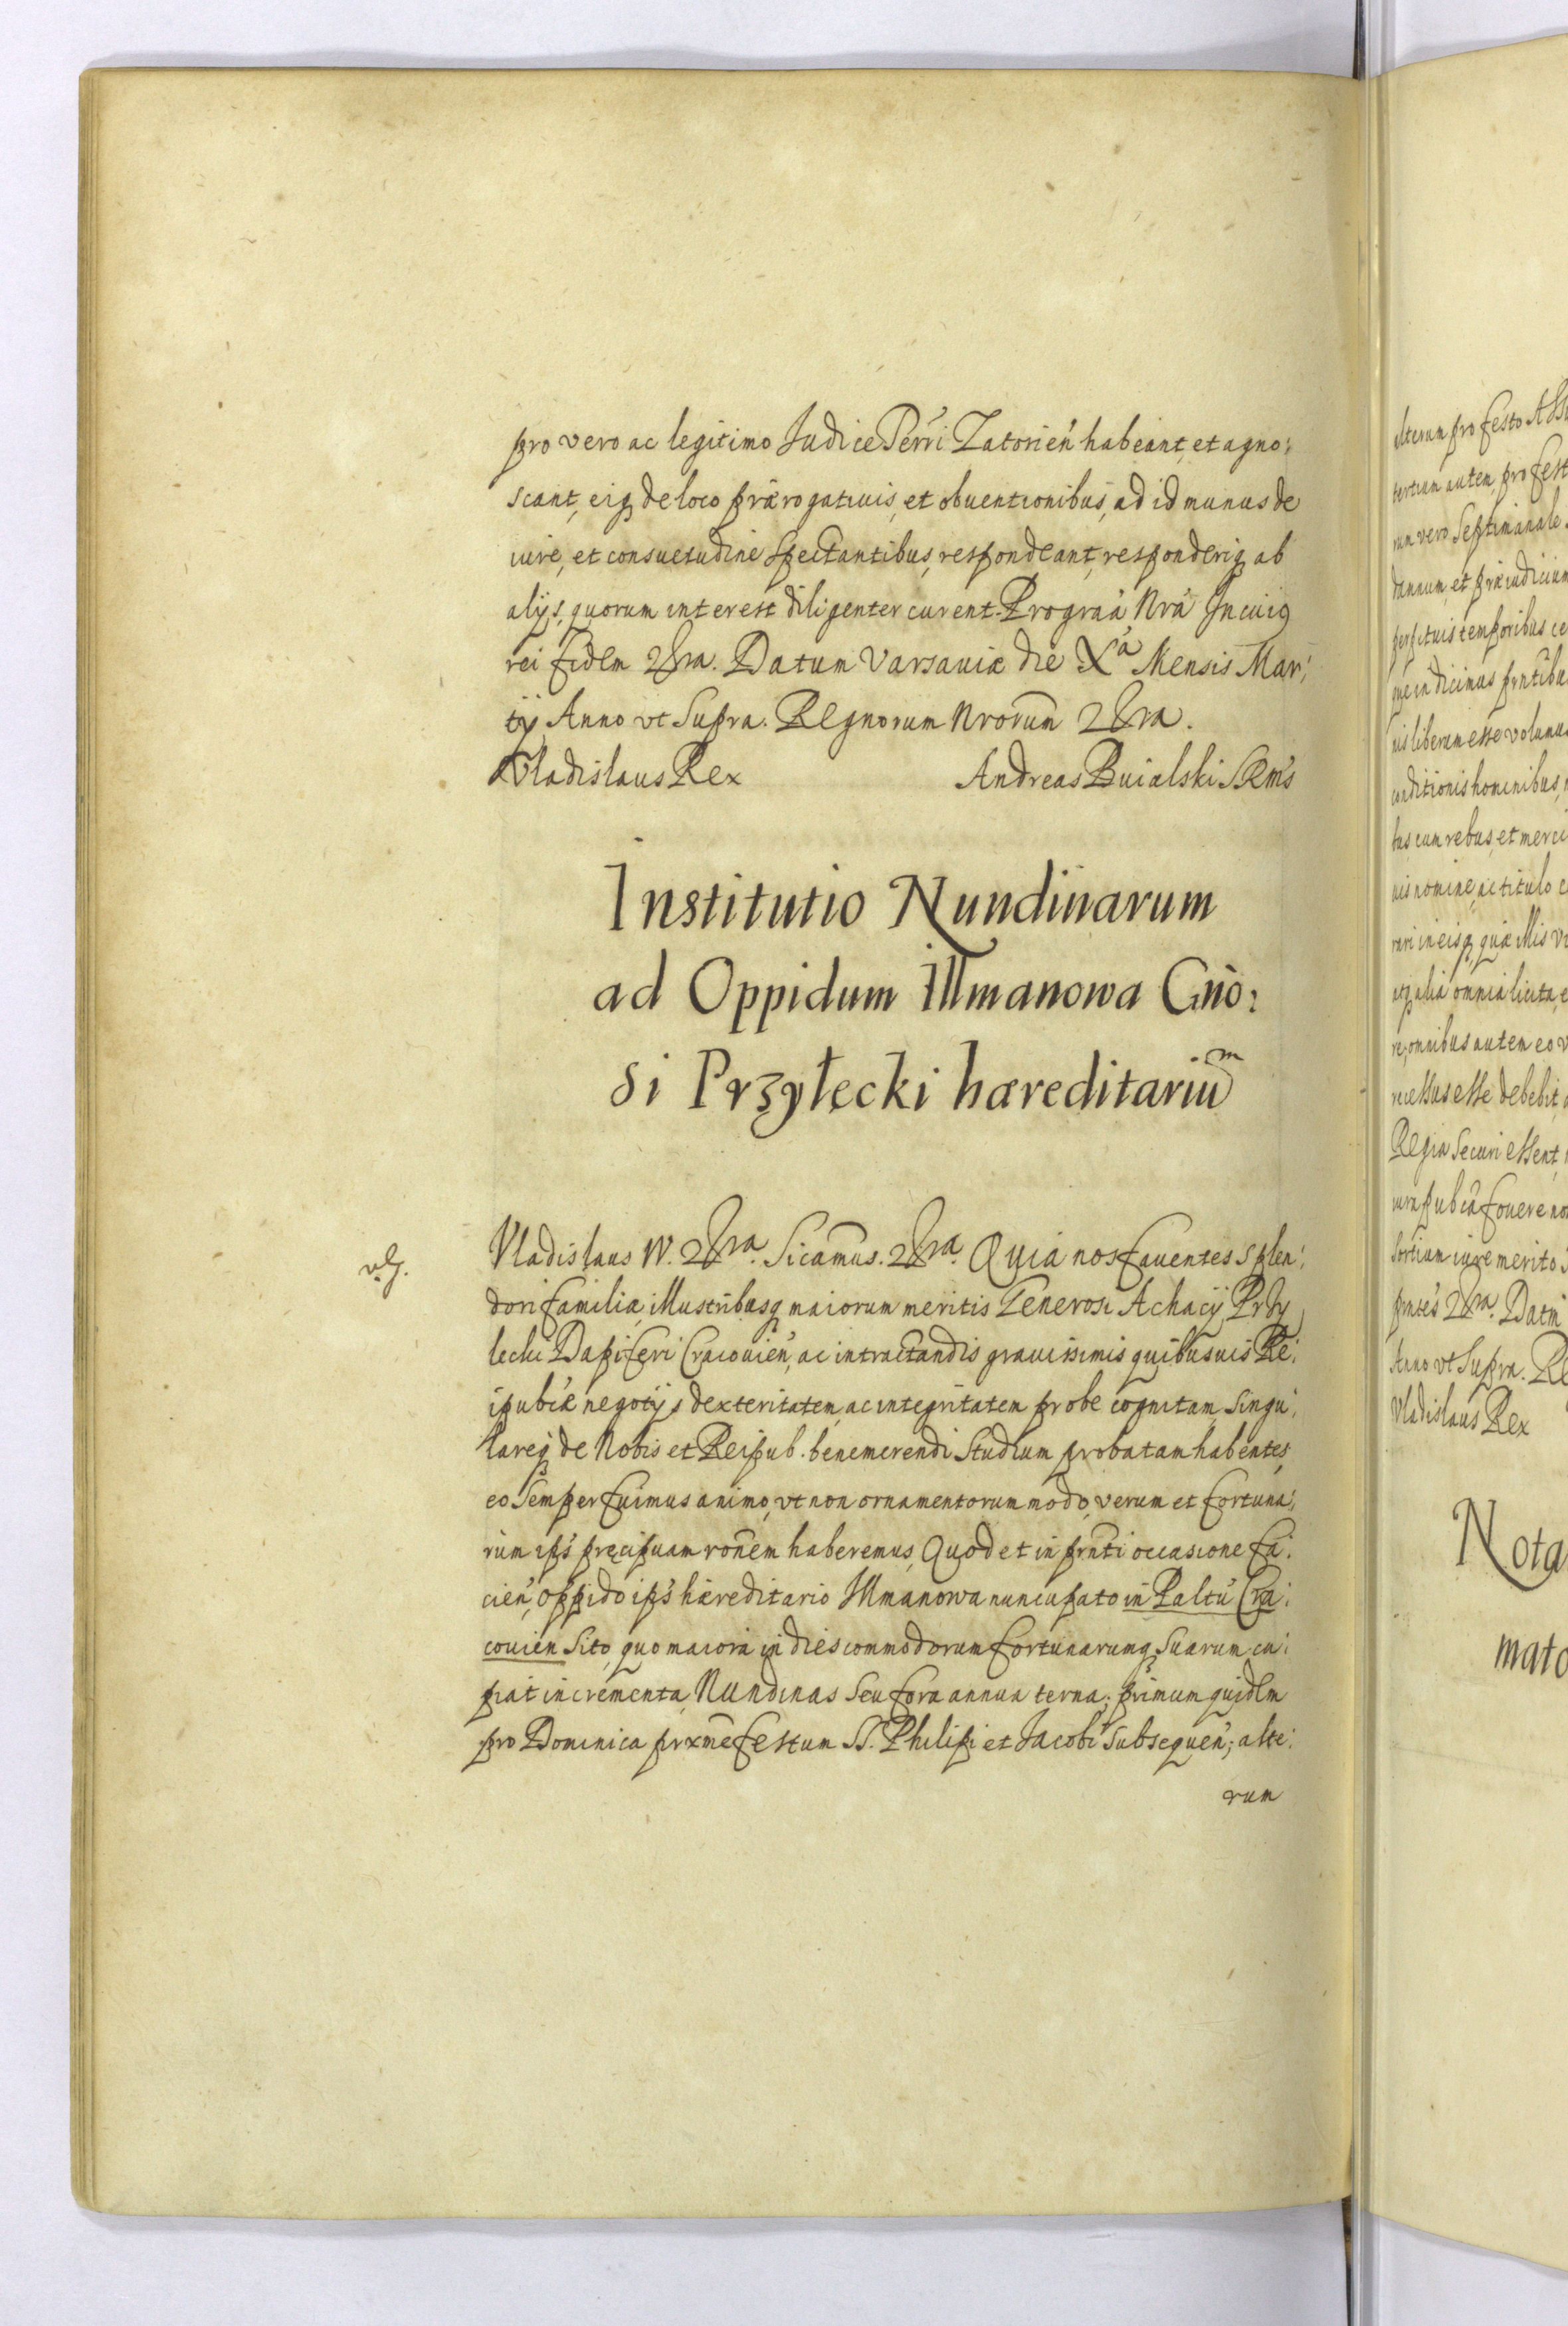 pro vero ac legitimo Judice Terri Zatorien habeant et agno:
scant, eiq de loco prærogativis, et obuentionibus, ad id munus de
iure, et consuetudine spectantibus, respondeant, responderiq ab
alijs, quorum interest diligenter curent. Pro graã Nrã In cuius
rei fidem &ra. Datum Varsauiæ die Xa Mensis Mar:
tij Anno vt supra. Regnorum Nrorum &ra.
Vladislaus Rex Andreas Buialski SRMs
Institutio Nundinarum
ad Oppidum Illmanowa Gño:
si Przyłęcki hæreditarium
Vladislaus IV. &ra. Sicamus. &ra. Quia nos fauentes splen:
dori familiæ, illustribusq maiorum meritis Generosi Achacij Przy
lecki Dapiferi Cracouien, ac in tractandis grauissimis quibusuis Re:
ipubcæ negotijs dexteritatem, ac integritatem probe cognitam, singu:
lareq de Nobis et Reipub. benemerendi studium probatam habentes,
eo semper fuimus animo, vt non ornamentorum modo, verum et fortuna:
rum ips precipuam ronem haberemus, Quod et in prnti occasione fa:
cien, oppido ips hæreditario Illmanowa nuncupato in Paltu Cra:
couien sito, quo maiora in dies commodorum fortunarumq suarum ca:
piat incrementa, Nundinas seu fora annua terna; primum quidem
pro Dominica prxme festum SS. Philipi et Jacobi subsequen; alte:
rum
ulterum pro festo Assu
tertium autem, pro fest
rum vero septimanale
damnum, et præiudicium
perpetuis temporibus ce
que indicimus prntibu
nis liberum esse volumus
conditionis hominibus,
bus cum rebus, et merci
uis nomine, ac titulo
rari in eisq, quæ illis
atq alia omnia licita, e
re, omnibus autem eo v
recessus esse debebit,
Regia securi essent,
iura pubca fouere no
sortium iure merito
prntes &ra. Datm
Anno vt supra. Re
Vladislaus Rex
Nota
mato